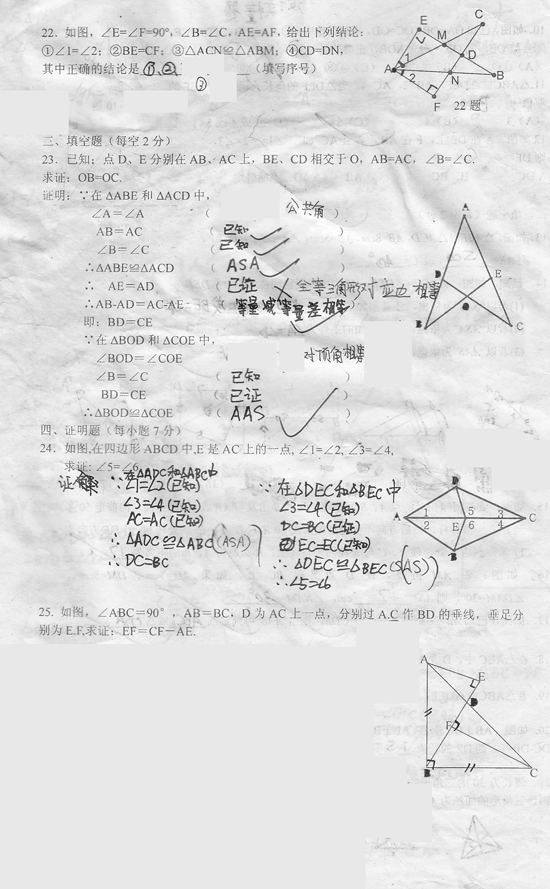 22. 如图, ∠E=∠F=90°, ∠B=∠C, AE=AF, 给出下列结论:
①∠1=∠2; ②BE=CF; ③△ACN≌△ABM; ④CD=DN,
其中正确的结论是 ①,② (填写序号)
③
E
C
M
D
A
1
2
N
B
F
22 题
三、填空题(每空 2 分)
23. 已知: 点 D、E 分别在 AB、AC 上, BE、CD 相交于 O, AB=AC, ∠B=∠C.
求证: OB=OC.
证明: ∵在△ABE 和△ACD 中,
∠A=∠A ( 公共角 )
AB=AC ( 已知 )
∠B=∠C ( 已知 )
∴△ABE≌△ACD ( ASA )
∴ AE=AD ( 已证 ) 全等三角形对应边相等
∴AB-AD=AC-AE ( 等量减等量差相等
即: BD=CE
∵在△BOD 和△COE 中,
∠BOD=∠COE ( 对顶角相等
∠B=∠C ( 已知 )
BD=CE ( 已证 )
∴△BOD≌△COE ( AAS )
A
D
E
O
B
C
四、证明题(每小题 7 分)
24. 如图,在四边形 ABCD 中,E 是 AC 上的一点, ∠1=∠2, ∠3=∠4,
求证: ∠5=∠6.
证
∵在△ADC和△ABC中
∠1=∠2(已知)
∠3=∠4(已知)
AC=AC(已知)
∴△ADC≌△ABC(ASA)
∴DC=BC
∵在△DEC和△BEC中
∠3=∠4(已知)
DC=BC(已证)
EC=EC(已知)
∴△DEC≌△BEC(SAS)
∴∠5=∠6
D
A
1
5
3
C
2
E
6
4
B
25. 如图, ∠ABC=90°, AB=BC, D 为 AC 上一点, 分别过 A.C 作 BD 的垂线, 垂足分
别为 E.F,求证: EF=CF-AE.
A
E
D
F
B
C